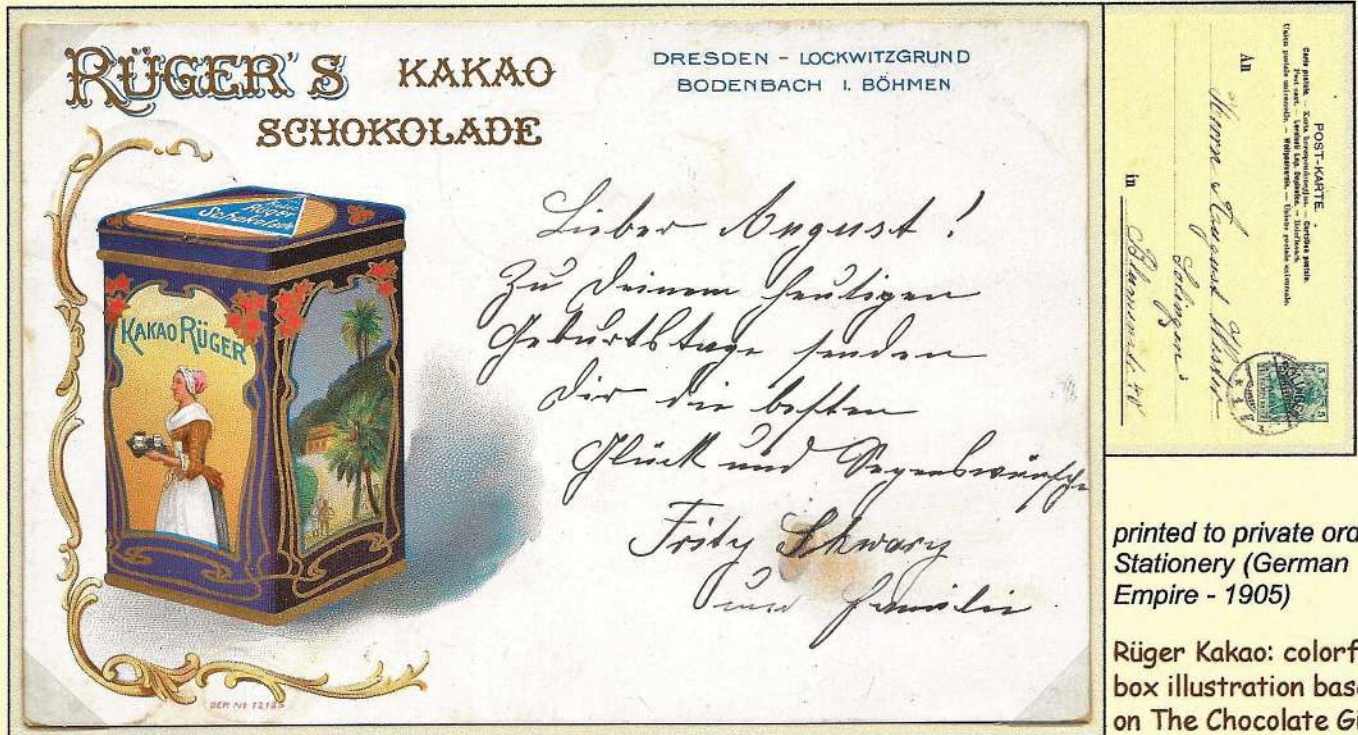 RÜGER'S KAKAO
SCHOKOLADE
DRESDEN - LOCKWITZGRUND
BODENBACH I. BÖHMEN
Rüger
Schokolade
KAKAO RÜGER
Lieber August!
Zu Deinem heutigen
Geburtstage senden
Dir die besten
Glück und Segenswünsche
Fritz Schwarz
und Familie
POST-KARTE.
An
Herrn August
Solingen
in
5 5
printed to private ord
Stationery (German
Empire - 1905)
Rüger Kakao: colorf
box illustration bas
on The Chocolate Gi